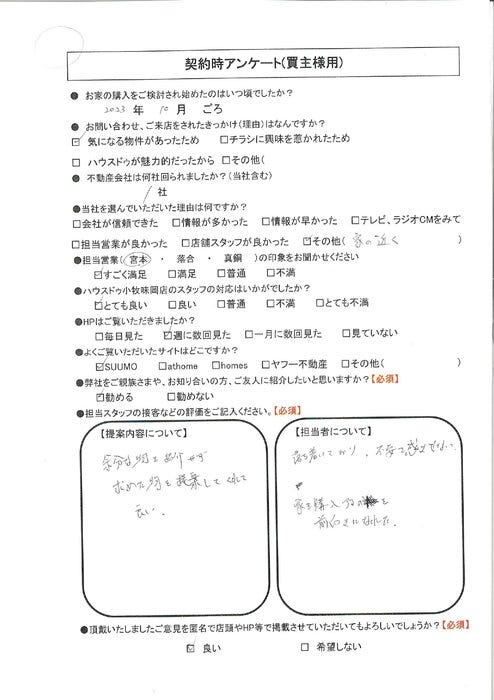 契約時アンケート(買主様用)
● お家の購入をご検討され始めたのはいつ頃でしたか？
2023 年 10 月 ごろ
● お問い合わせ、ご来店をされたきっかけ(理由)はなんですか？
☑ 気になる物件があったため □チラシに興味を惹かれたため
□ ハウスドゥが魅力的だったから □その他(
● 不動産会社は何社回られましたか？(当社含む)
1 社
●当社を選んでいただいた理由は何ですか？
□会社が信頼できた □情報が多かった □情報が早かった □テレビ、ラジオCMをみて
□担当営業が良かった □店舗スタッフが良かった ☑その他( 家の近く )
●担当営業( 宮本 ・ 落合 ・ 真銅 )の印象をお聞かせください
☑すごく満足 □満足 □普通 □不満
●ハウスドゥ小牧味岡店のスタッフの対応はいかがでしたか？
☑とても良い □良い □普通 □不満 □とても不満
●HPはご覧いただきましたか？
□毎日見た ☑週に数回見た □一月に数回見た □見ていない
●よくご覧いただいたサイトはどこですか？
☑SUUMO □athome □homes □ヤフー不動産 □その他( )
●弊社をご親族さまや、お知り合いの方、ご友人に紹介したいと思いますか？【必須】
☑勧める □勧めない
●担当スタッフの接客などの評価をご記入ください。【必須】
【提案内容について】
余分な物を紹介せず
求めた物を提案してくれて
良い。
【担当者について】
落ち着いており、不安を感じさせない
家を購入するのを
前向きになれた。
●頂戴いたしましたご意見を匿名で店頭やHP等で掲載させていただいてもよろしいでしょうか？【必須】
☑ 良い □ 希望しない